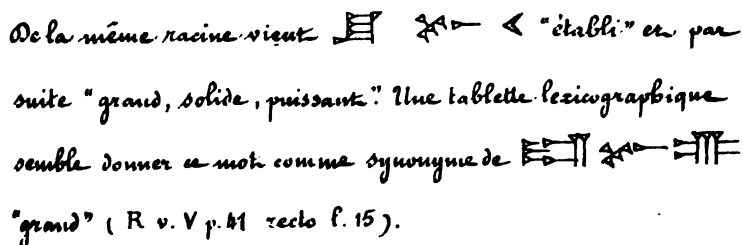 De la même racine vient "établi" et par
suite "grand, solide, puissant". Une tablette lexicographique
semble donner ce mot comme synonyme de
"grand" ( R v. V p. 41 recto l. 15 ).